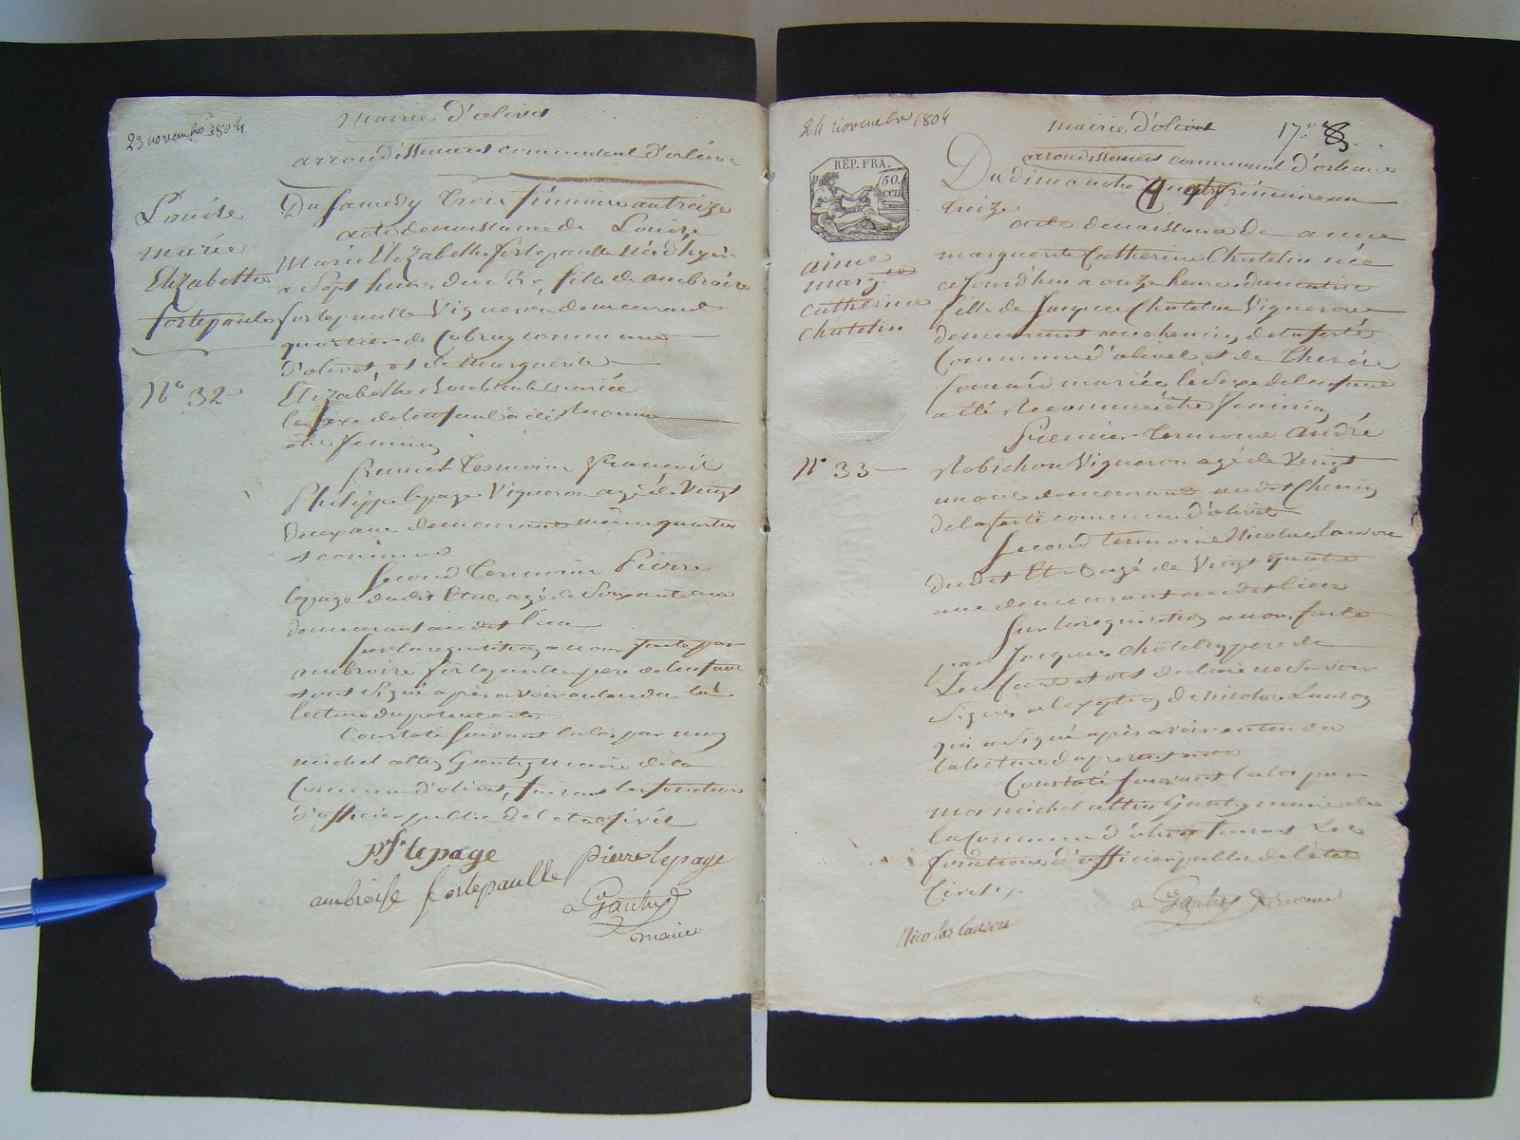 23 novembre 1804
Mairie d'olivet
arrondissement communal d'orléans
Louise
marie
Elizabethe
fortepaulle
N° 32
Du samedy trois frimaire an treize
acte de naissance de Louise
Marie Elizabethe fortepaulle née d'hyer
a sept heures du soir, fille de ambroise
fortepaulle Vigneron demeurant
quartier de commune
d'olivet, et de marguerite
Elizabethe mariée
le sexe de lenfant a été reconnu
être feminin
Premier temoin françois
Philippe lepage Vigneron agé de Vingt
deux ans demeurant même quartier
et commune
second temoin Pierre
lepage dudit Etat, agé de soixante ans
demeurant audit lieu
sur la requisition a nous faite par
ambroise fortepaulle pere de lenfant
et ont signé après avoir entendu la
lecture du present acte
Constaté suivant la loi par moy
michel altin Gautry maire de la
Commune d'olivet, faisant les fonctions
d'officier public de l'etat civil
pf lepage
pierre lepage
ambroise fortepaulle
a Gautry
maire
24 novembre 1804
mairie d'olivet
17.e
arrondissement communal d'orleans
REP. FRA.
50
CEN
Du dimanche quatre frimaire an
treize
acte de naissance de anne
marguerite Catherine Chatelin née
cejourd'hui a onze heures du matin
fille de Jacques Chatelin Vigneron
demeurant au chemin de la ferté
Commune d'olivet et de Therese
mariée, le sexe de lenfant
a été reconnu être feminin
anne
marg.te
catherine
chatelin
N° 33
Premier temoin André
Robichon Vigneron agé de Vingt
un ans demeurant audit Chemin
de la ferté commune d'olivet
second temoin Nicolas Lanson
dudit Etat agé de Vingt quatre
ans demeurant audit lieu
sur la requisition a nous faite
par Jacques Chatelin pere de
Lenfant et ont declaré ne savoir
signer a l'exception de Nicolas Lanson
qui a signé après avoir entendu
la lecture du present acte
Constaté suivant la loi par
moi michel altin Gautry maire de
la Commune d'olivet faisant Les
fonctions d'officier public de l'état
Civil.
a Gautry maire
Nicolas Lanson